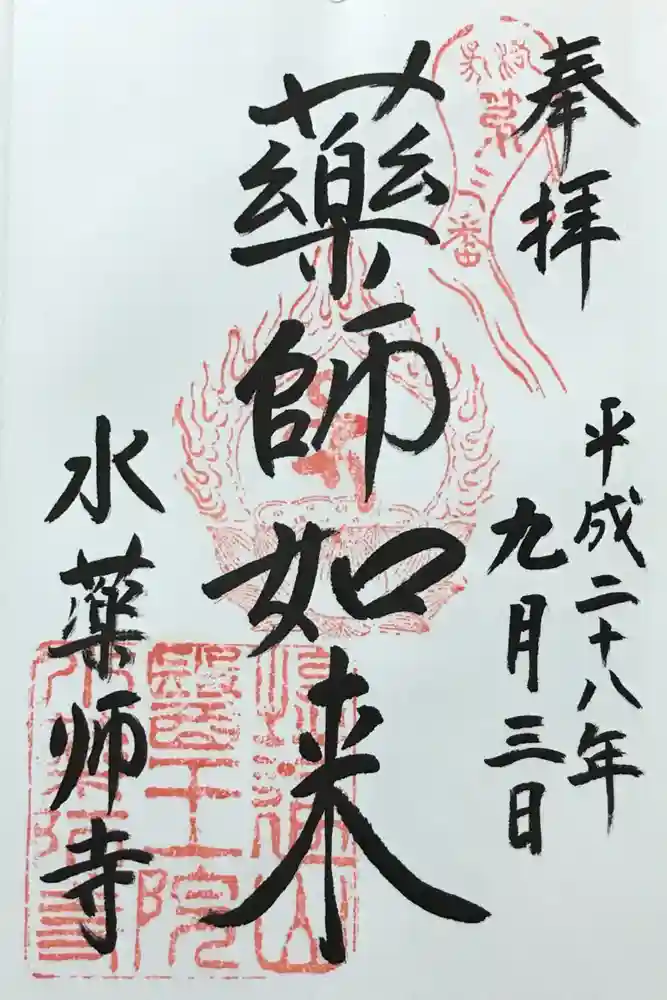 奉拝
平成二十八年
九月三日
第三番
藥師如来
水薬师寺
醫王院